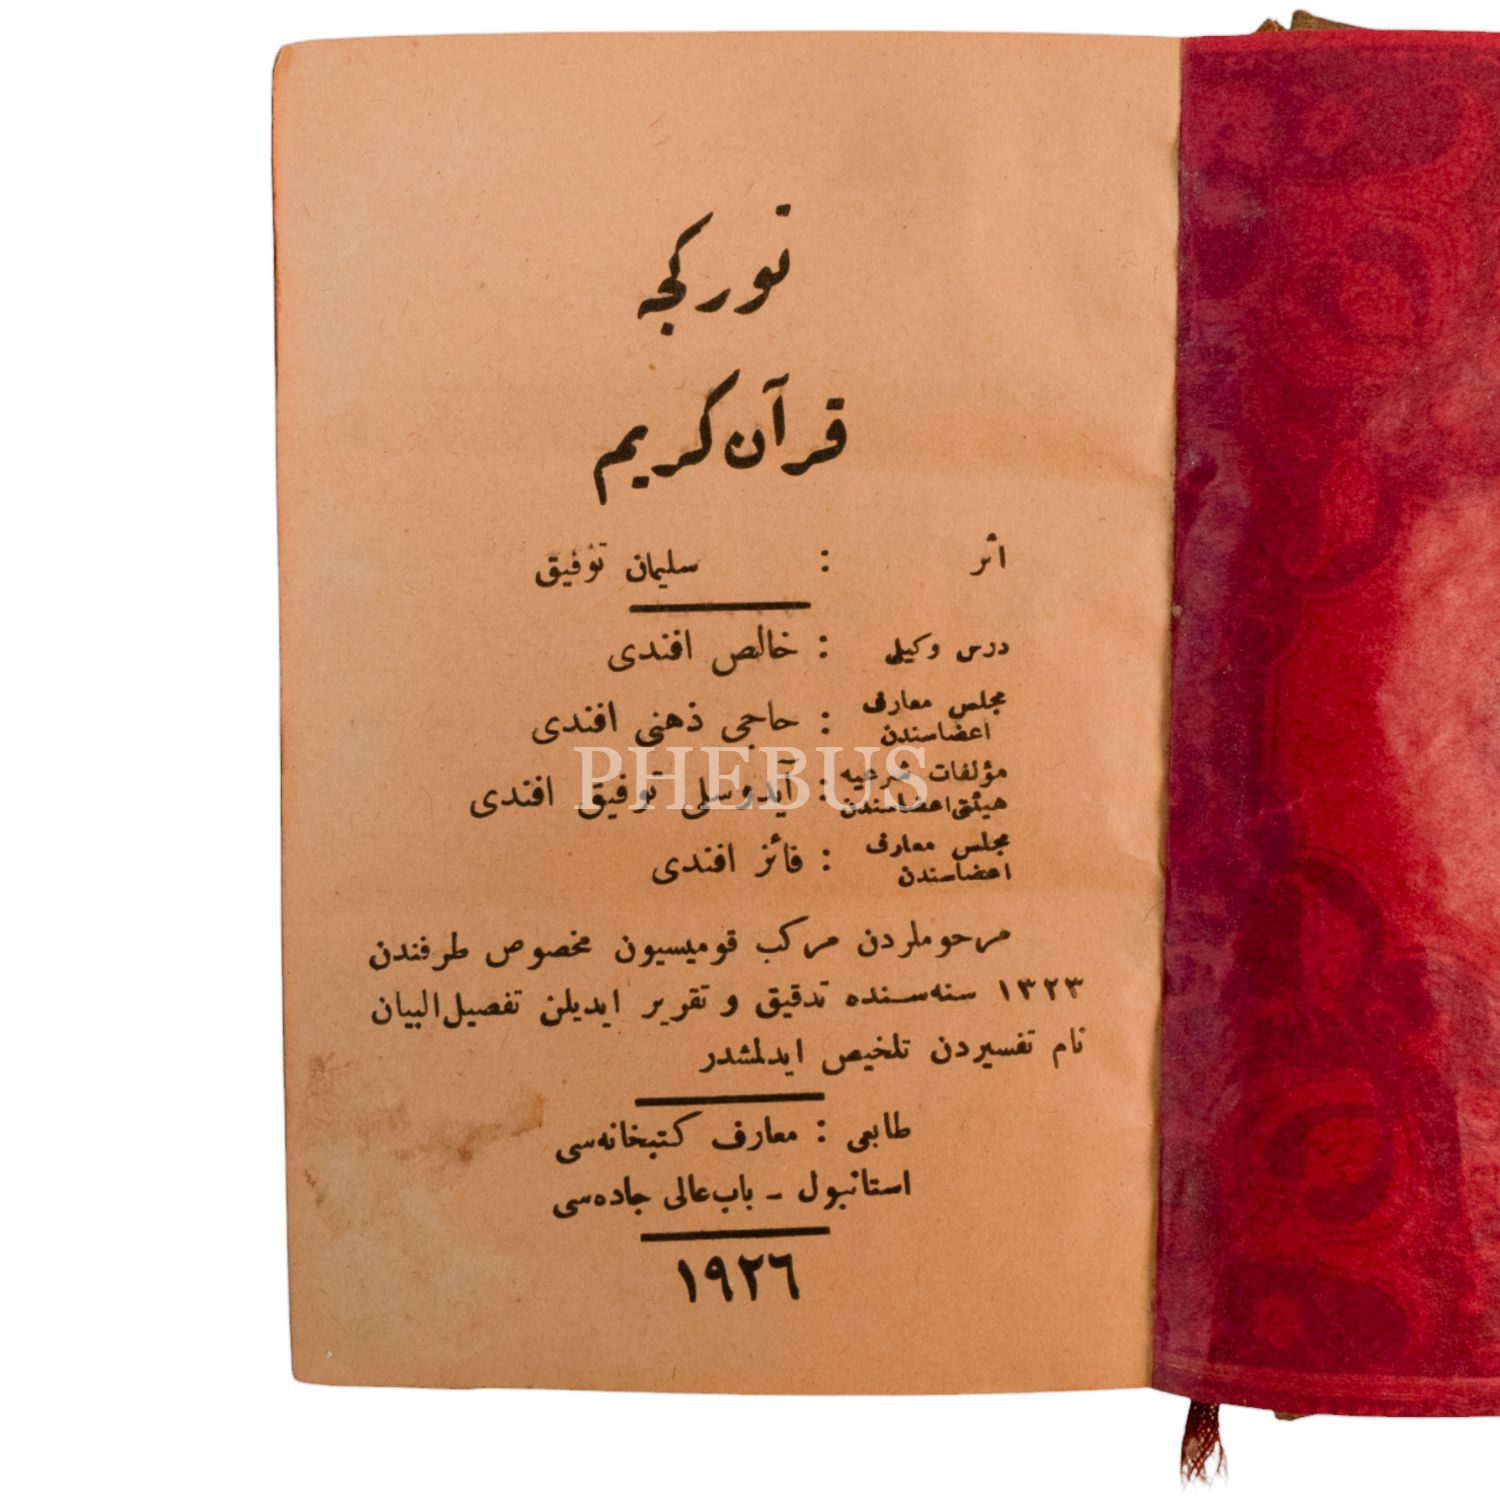 تورکجه
قرآن کریم
اثر : سلیمان توفیق
درس وکیلی : خالص افندی
مجلس معارف اعضاسندن : حاجی ذهنی افندی
مؤلفات شرعیه هیئتی اعضاسندن : آیدوسلی توفیق افندی
مجلس معارف اعضاسندن : فائز افندی
مرحوملردن مرکب قومیسیون مخصوص طرفندن
۱۳۲۳ سنه‌سنده تدقیق و تقریر ایدیلن تفصیل البیان
نام تفسیردن تلخیص ایدلمشدر
طابعی : معارف کتبخانه‌سی
استانبول ـ باب عالی جاده‌سی
۱۹۲٦
PHEBUS